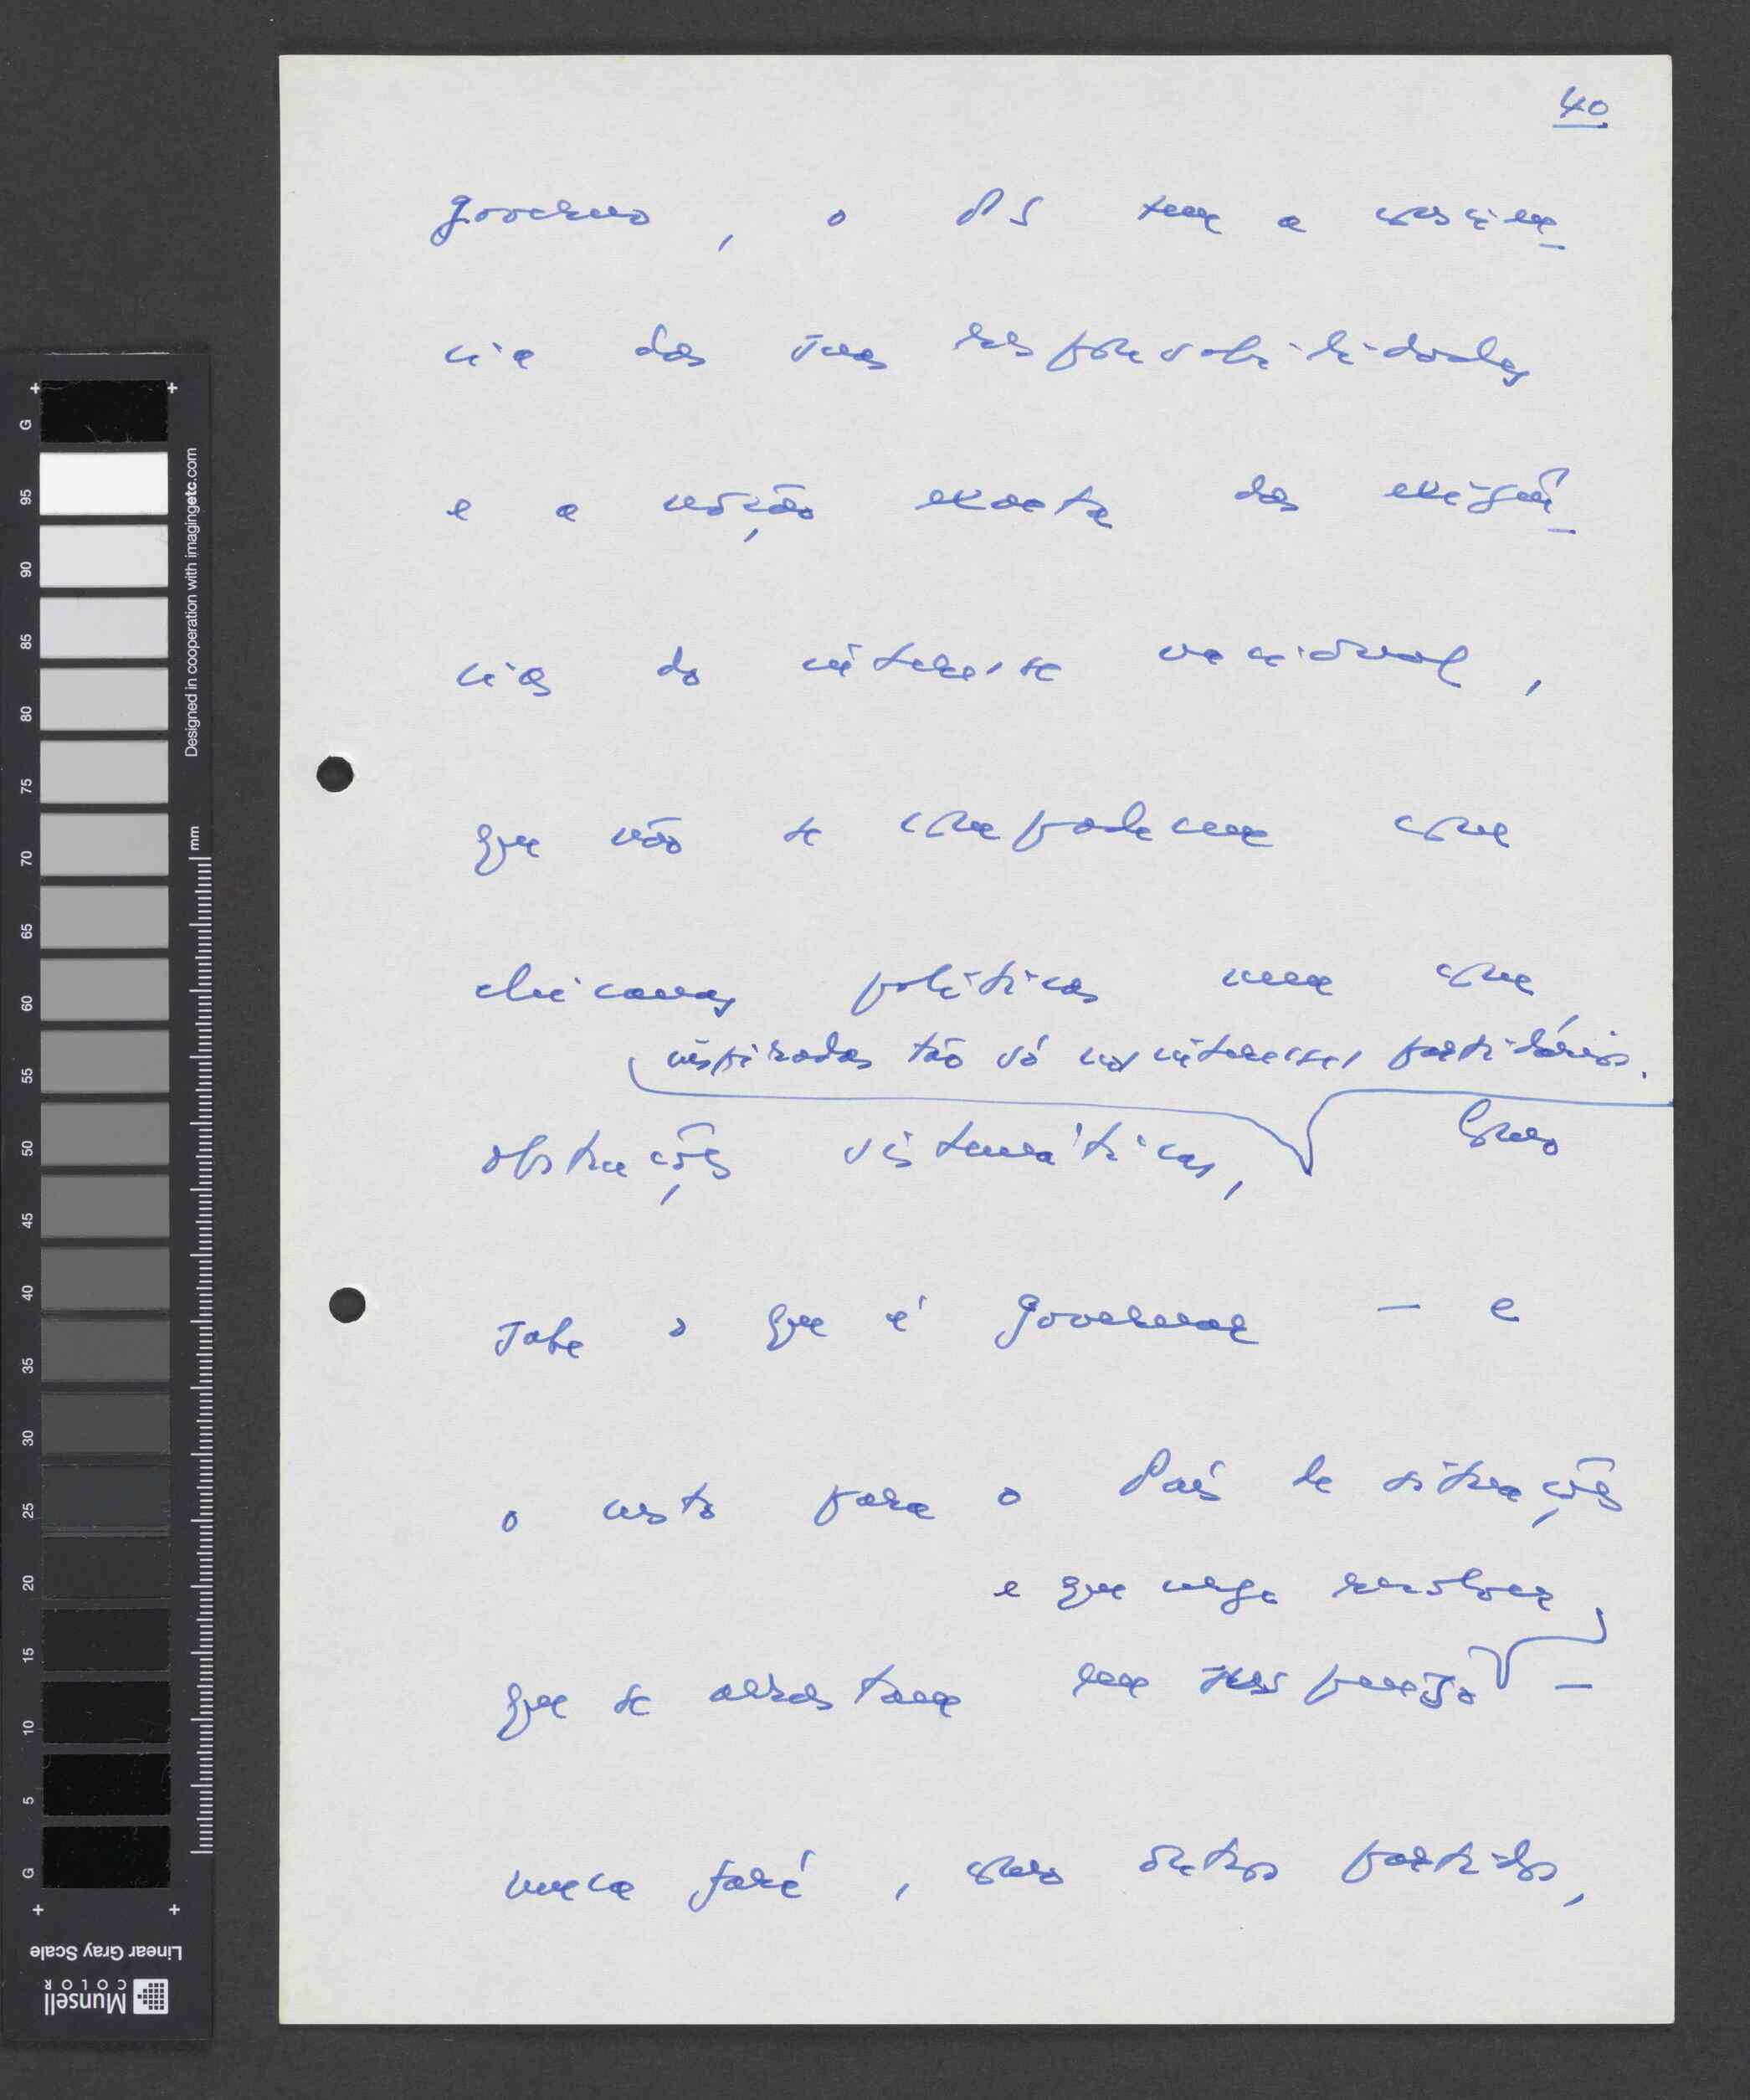 40
governo, o PS tem a consciên_
cia das suas responsabilidades
e a noção exacta das exigên_
cias do interesse nacional,
que não se compadecem com
chicanas políticas nem com
inspiradas tão só nos interesses partidários.
obstruções sistemáticas, Como
sabe o que é governar — e
o custo para o País de situações
e que urge resolver
que se arrastam em suspenso —
nunca fará, como outros partidos,
G
95
90
85
80
75
70
65
60
55
50
45
40
35
30
25
20
15
10
5
G
Designed in cooperation with imagingetc.com
mm
Linear Gray Scale
Munsell
COLOR